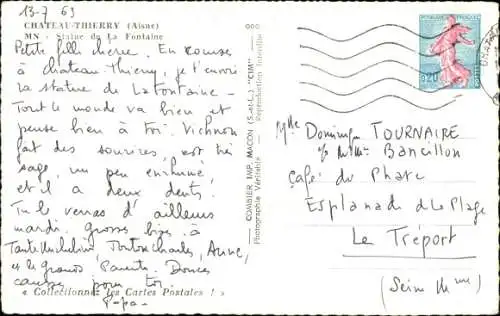 13-7 63
CHATEAU-THIERRY (Aisne)
MN - Statue de La Fontaine
Petite fille chérie. En course
à chateau Thierry, je t'envoie
la statue de La Fontaine -
Tout le monde va bien et
pense bien à toi.
fait des sourires, est très
sage, un peu enrhumé,
et il a deux dents.
Tu le verras d'ailleurs
mardi. Grosses bises à
Tante Tonton Charles, Anne,
et les Grands Parents. Douces
pour toi
Papa
« Collectionnez les Cartes Postales ! »
COMBIER IMP. MACON (S.-et-L.) "CIM"
Photographie Véritable - Reproduction Interdite
REPUBLIQUE FRANÇAISE
0,20
POSTES
Mlle Dominique TOURNAIRE
% Mr Mme Bancillon
Café du Phare
Esplanade de la Plage
Le Tréport
(Seine Mme)